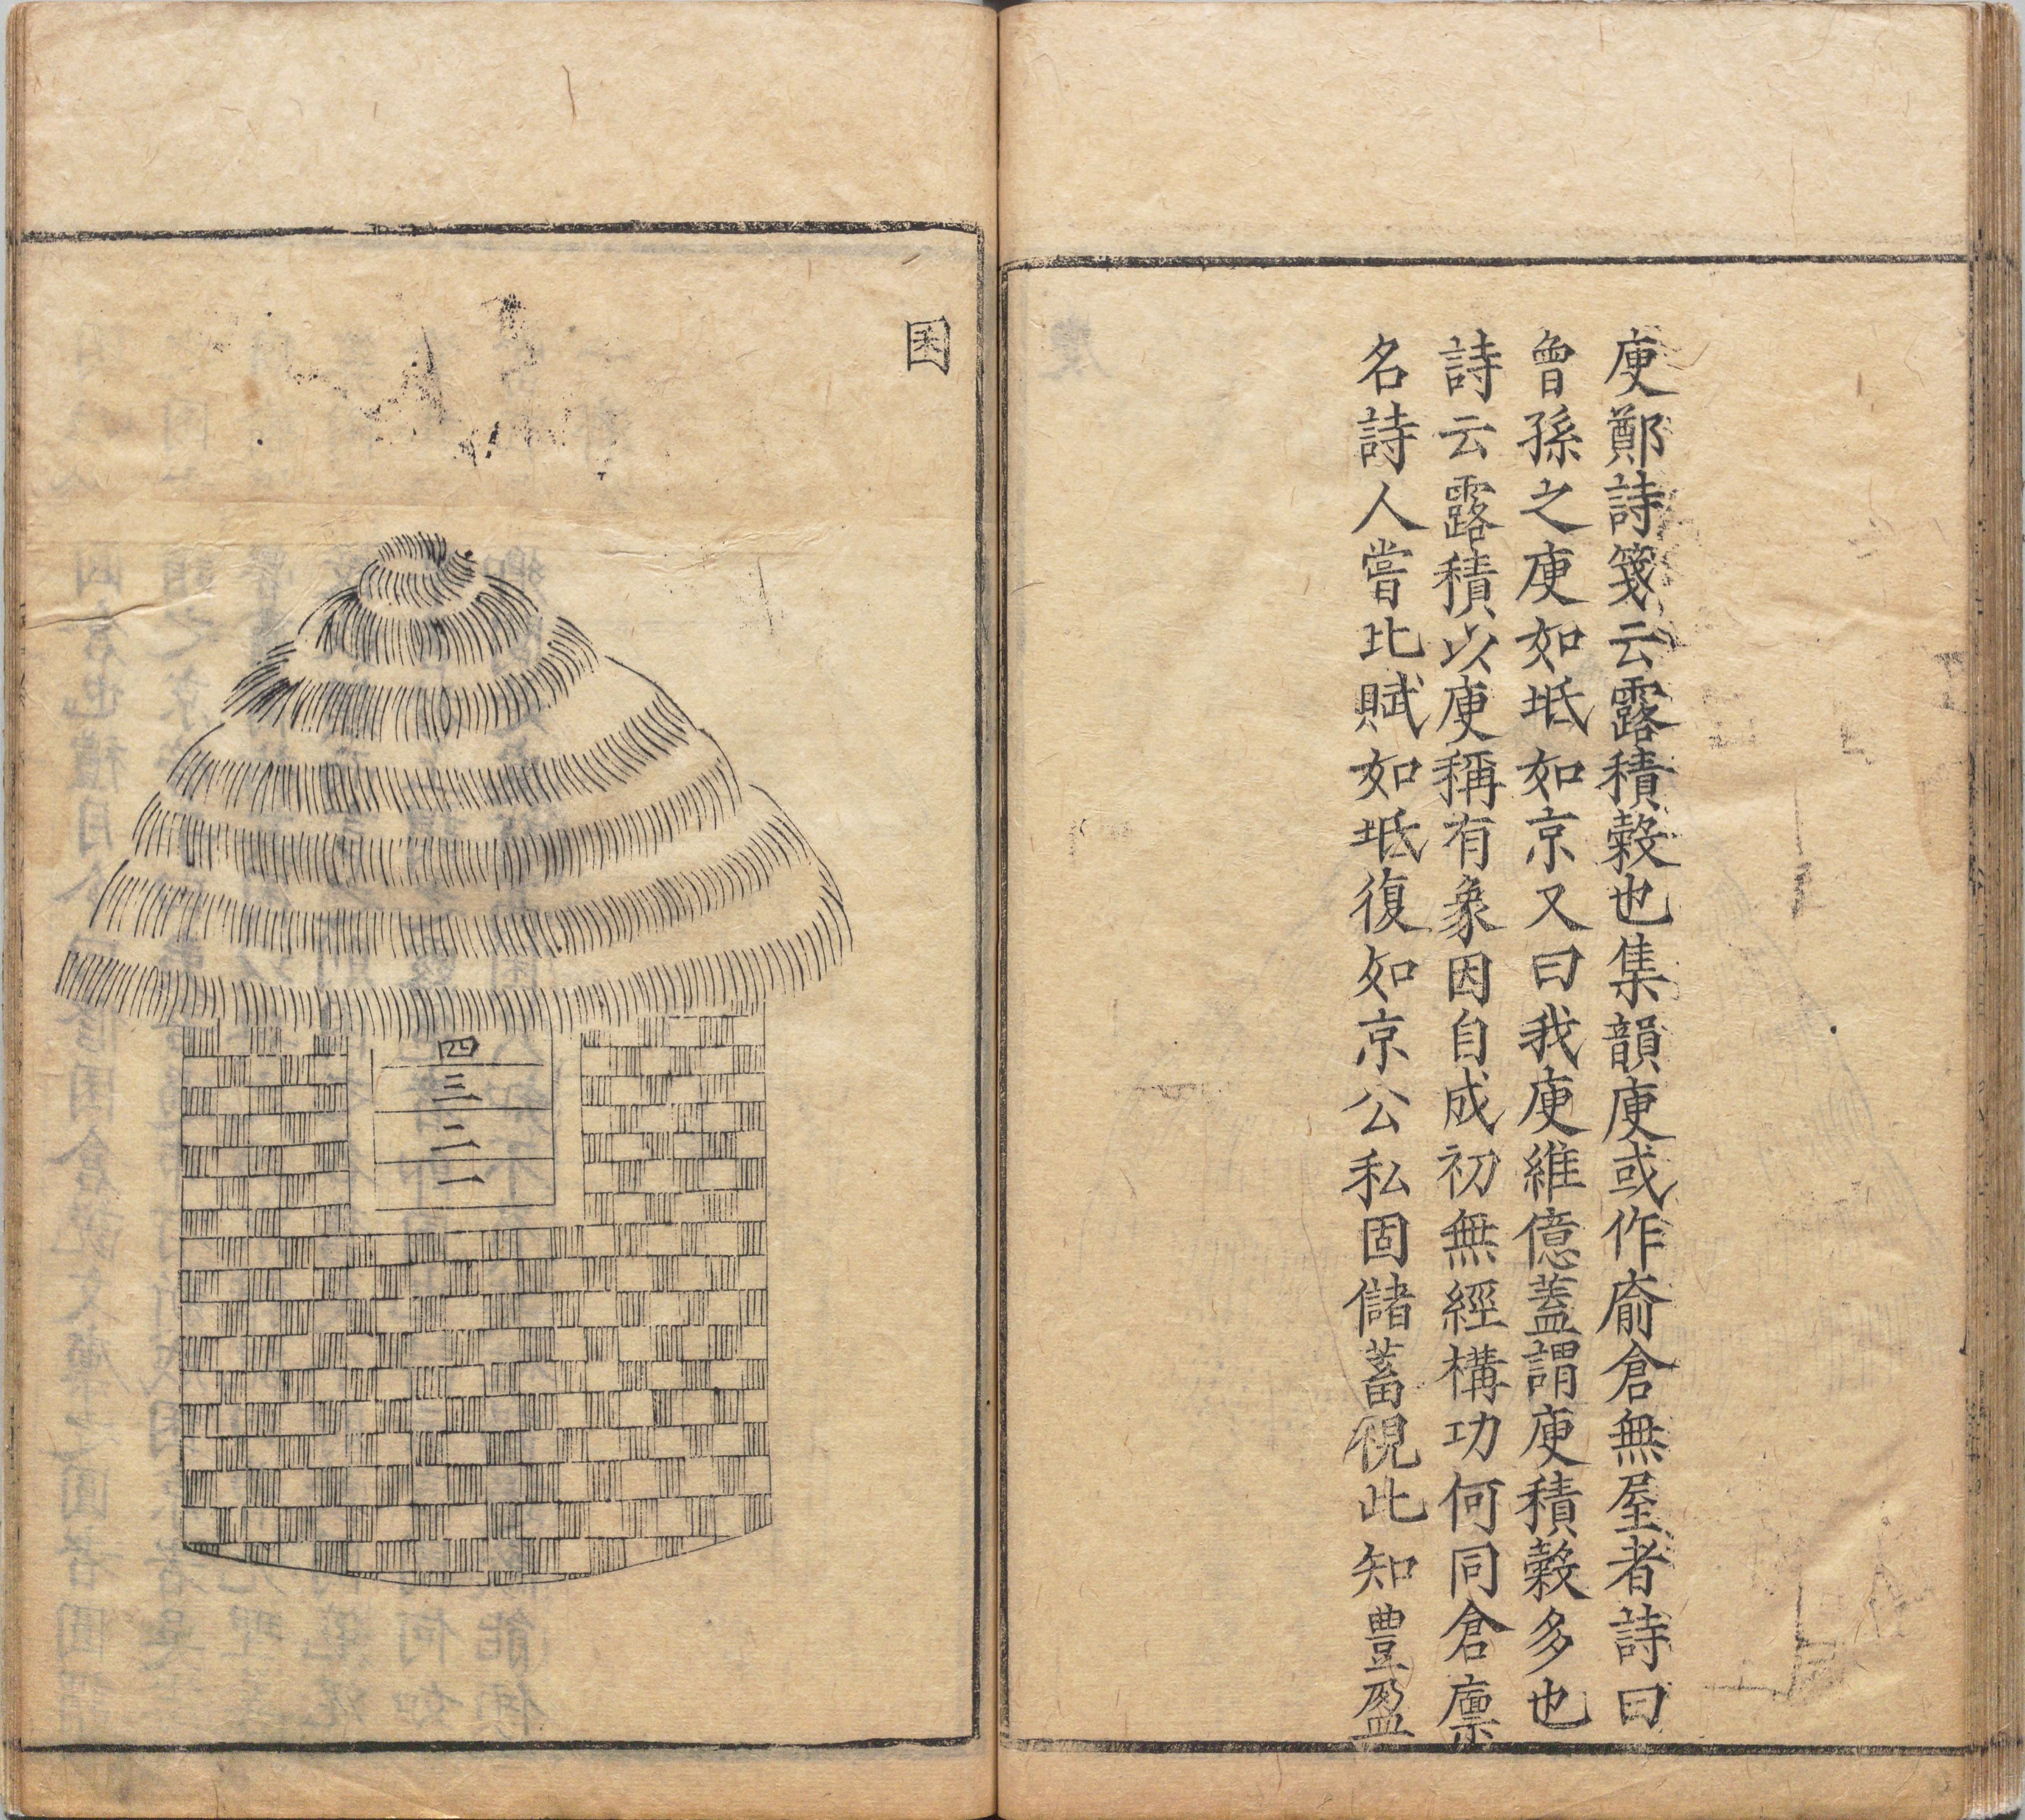 庾鄭詩箋云露積穀也集韻庾或作㔱倉無屋者詩曰
曾孫之庾如坻如京又曰我庾維億蓋謂庾積穀多也
詩云露積以庾稱有象因自成初無經構功何同倉廪
名詩人嘗比賦如坻復如京公私固儲蓄視此知豊盈
囷
四
三
二
一